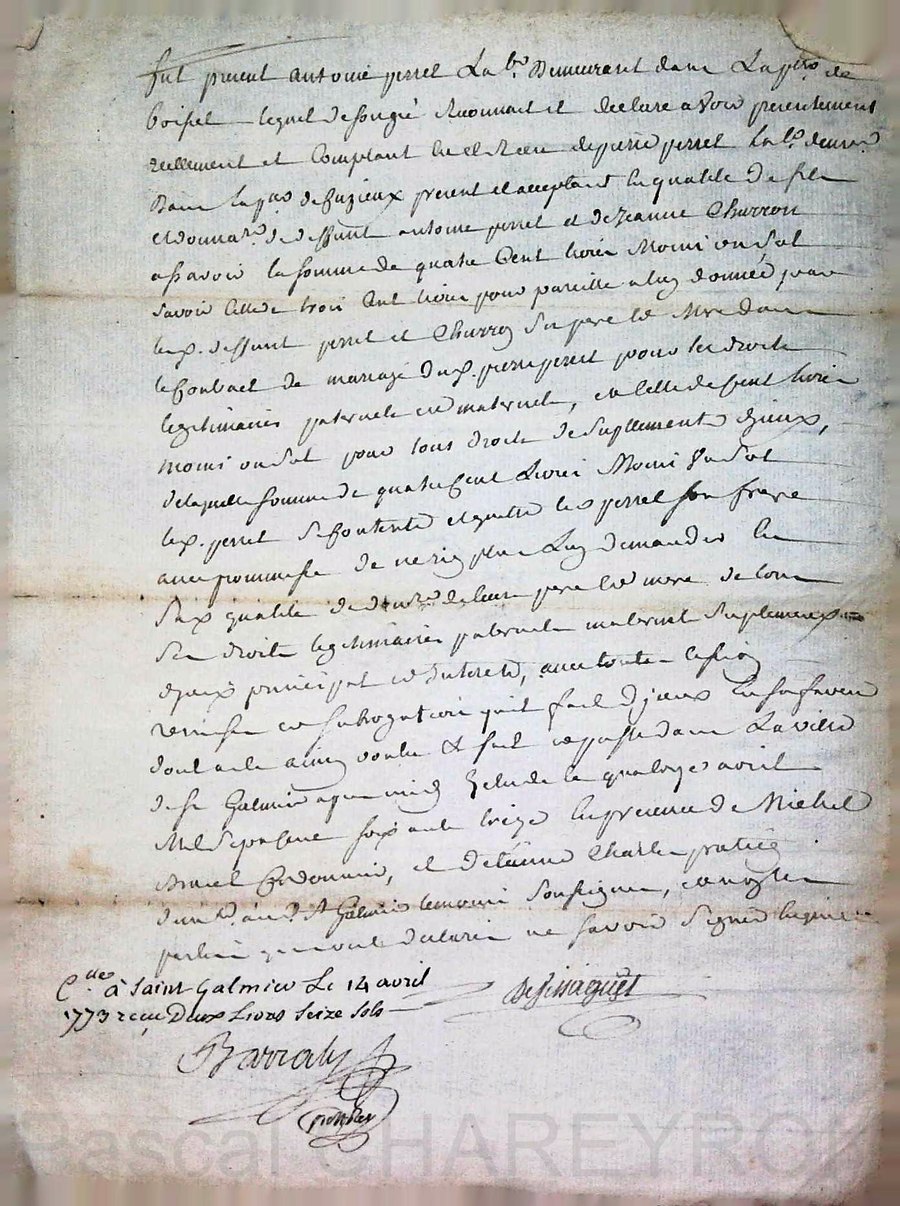 fut present antoine perret La.br Demeurant dans La p.sse de
boisset lequel de son gré Reconnait et declare avoir presentement
reellement et Comptant heu et Receu de pierre perret La.br demeur.t
Dans La p.sse de Cuzieux present et acceptant En qualité de fils
et donnat.re de deffunt antoine perret et de Jeanne Charron
a sçavoir la somme de quatre Cent livres Moins un Sol
savoir Celle de trois Cent livres pour pareille a luy donnée par
les d. deffunt perret et Charron Ses pere et Mere dans
le Contract de mariage du d. pierre perret pour Ses droits
legitimaires paternels et maternels, et Celle de Cent livres
moins un Sol pour tous droits de Suplement d'iceux,
de laquelle Somme de quatre Cent Livres Moins Un Sol
le d. perret Se Contente et quitte led perret Son frere
avec promesse de ne rien plus Luy demander En
Sa d. qualité de donat.re de leurs pere et mere de tous
Ses droits legitimaires paternels maternels Suplement
d'iceux principal et Interets, avec toute Cession
remise et Subrogation qu'il fait d'iceux En Sa faveur
dont acte ainsy voulu & fait et passé dans La ville
de S.t Galmier apres midy Etude le quatorze avril
Mil Sept cent Soixante treize En presence de Michel
Cordonnier, et d'Etienne Charles praticien
dud. S.t Galmier temoins Soussignes, et non les
parties qui ont declaré ne Savoir Signer
C.lle à Saint Galmier Le 14 avril
1773 reçu Deux Livres Seize Sols
Barraly
Pascal CHAREYRON